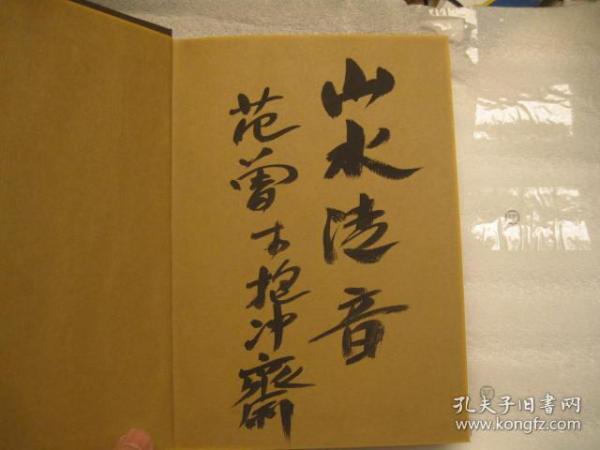 山水清音
范曾于抱冲斋
孔夫子旧书网
www.kongfz.com